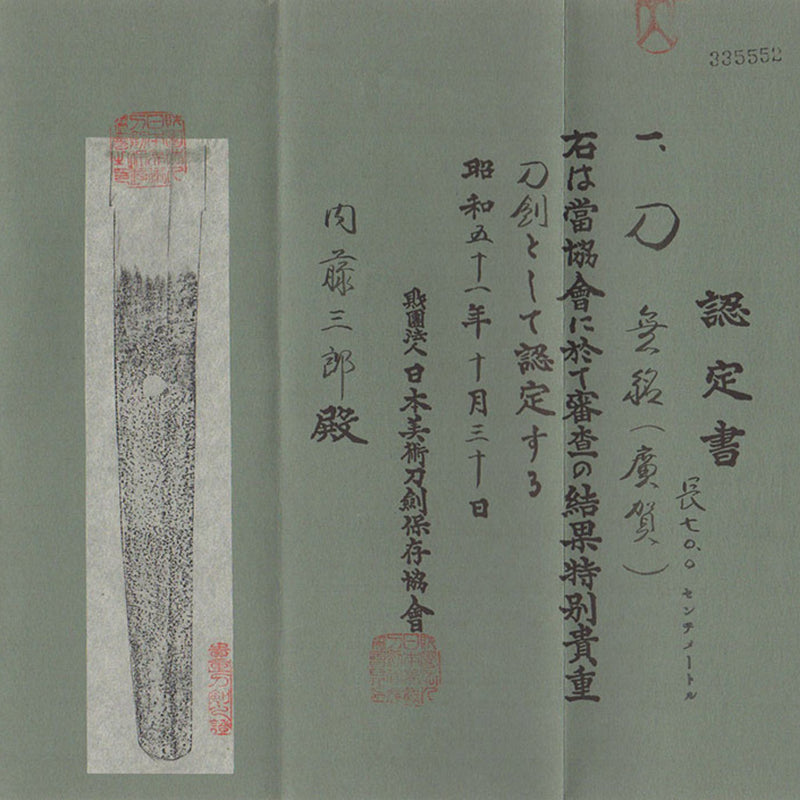 335552
認定書
一、刀 無銘（廣賀）
長七〇、〇センチメートル
右は當協會に於て審査の結果特別貴重
刀剣として認定する
昭和五十一年十月三十日
財團法人日本美術刀劍保存協會
内藤三郎殿